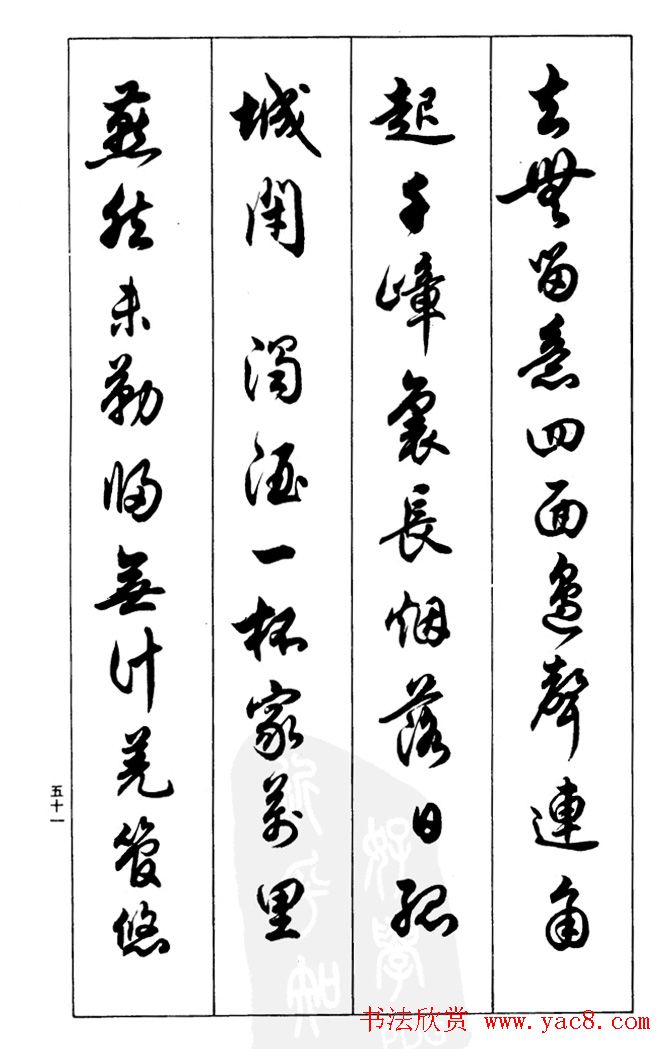 去無留意四面邊聲連角
起千嶂裏長烟落日孤
城閉 濁酒一杯家萬里
燕然未勒歸無計羌管悠
五十一
书法欣赏 www.yac8.com